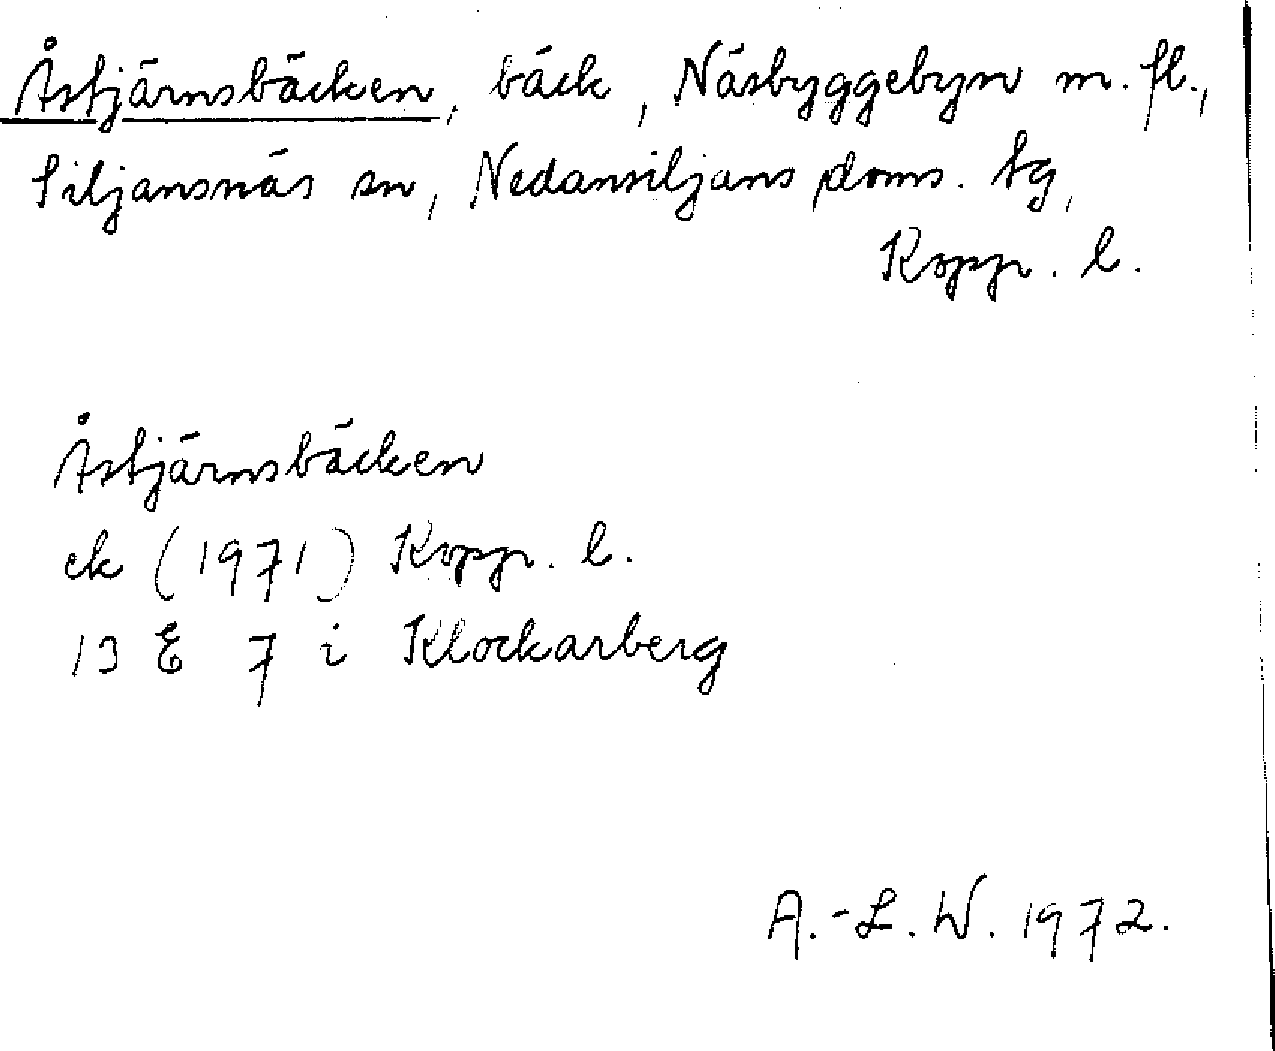 Åstjärnsbäcken, bäck, Näsbyggebyn m. fl.,
Siljansnäs sn, Nedansiljans doms. tg,
Kopp. l.
Åstjärnsbäcken
ek (1971) Kopp. l.
13 E 7 i Klockarberg
A.-L. W. 1972.